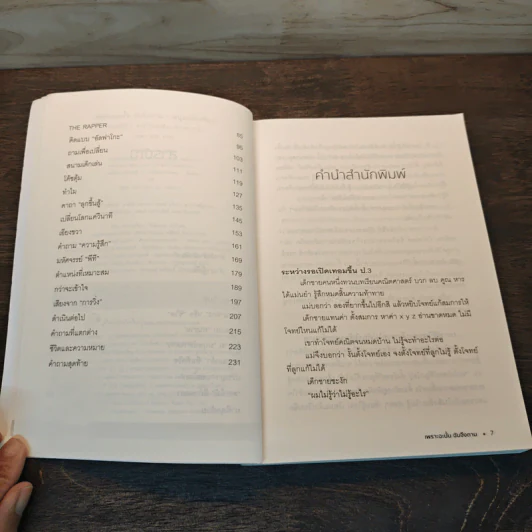 THE RAPPER 85
คิดแบบ "อัลฟาโกะ" 95
ถามเพื่อเปลี่ยน 103
สนามเด็กเล่น 111
โค้ชคุ้ม 119
ทำไม 127
คาถา "ลุกขึ้นสู้" 135
เปลี่ยนโลกแค่วินาที 145
เฮียงชวา 153
คำถาม "ความรู้สึก" 161
มหัศจรรย์ "พีที" 169
ตำแหน่งที่เหมาะสม 179
กว่าจะเข้าใจ 189
เสียงจาก "การวิ่ง" 197
ดำเนินต่อไป 207
คำถามที่แตกต่าง 215
ชีวิตและความหมาย 223
คำถามสุดท้าย 231
คำนำสำนักพิมพ์
ระหว่างรอเปิดเทอมขึ้น ป.3
เด็กชายคนหนึ่งทวนบทเรียนคณิตศาสตร์ บวก ลบ คูณ หาร
ได้แม่นยำ รู้สึกหมดสิ้นความท้าทาย
แม่บอกว่า ลองที่ยากขึ้นไปอีกสิ แล้วหยิบโจทย์แก้สมการให้
เด็กชายแทนค่า ตั้งสมการ หาค่า x y z อ่านขาดหมด ไม่มี
โจทย์ไหนแก้ไม่ได้
เขาทำโจทย์คณิตจนหมดบ้าน ไม่รู้จะทำอะไรต่อ
แม่จึงบอกว่า งั้นตั้งโจทย์เอง จงตั้งโจทย์ที่ลูกไม่รู้ ตั้งโจทย์
ที่ลูกแก้ไม่ได้
เด็กชายชะงัก
"ผมไม่รู้ว่าไม่รู้อะไร"
เพราะฉะนั้น ฉันจึงถาม • 7